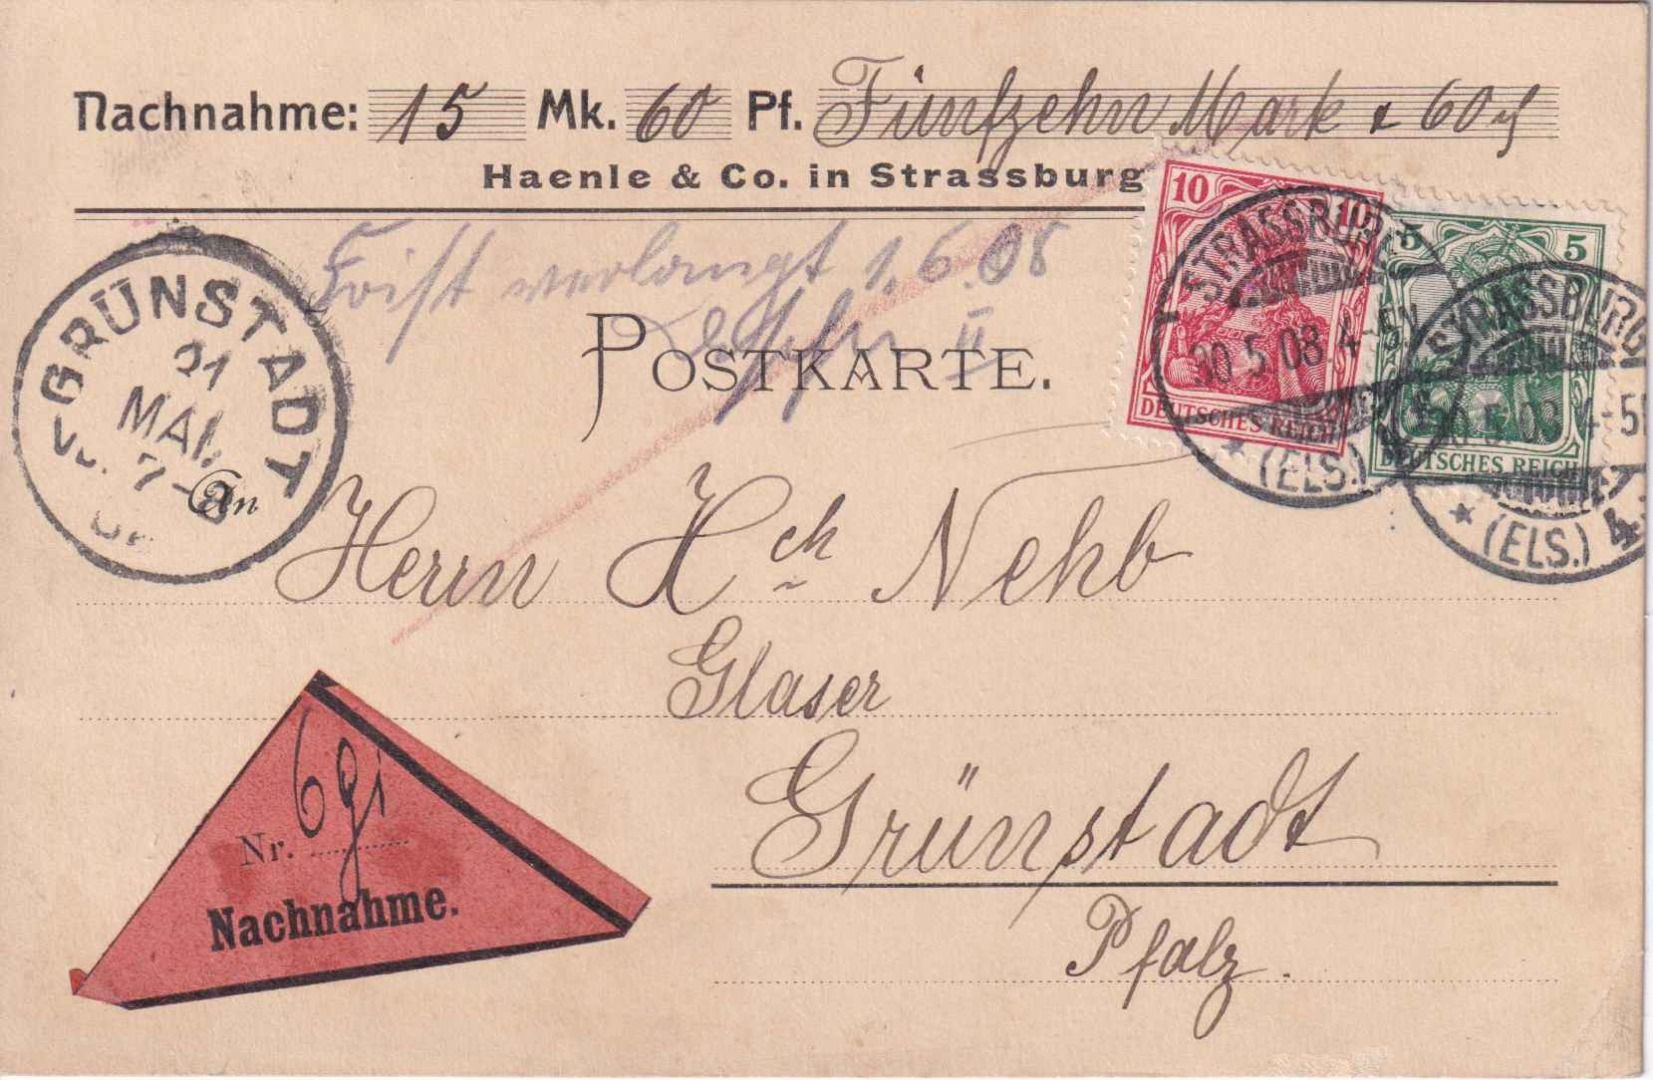 Nachnahme: 15 Mk. 60 Pf. Fünfzehn Mark & 60 ₰
Haenle & Co. in Strassburg
Frist verlangt 1.6.08
II
POSTKARTE.
10 10
DEUTSCHES REICH
5 5
DEUTSCHES REICH
STRASSBURG
30.5.08.4-5N
* (ELS.)
STRASSBURG
30.5.08.4-5
* (ELS.) 4
GRÜNSTADT
MAI
7-8
An
Herrn Hch Nehb
Glaser
Grünstadt
Pfalz.
Nr.
Nachnahme.